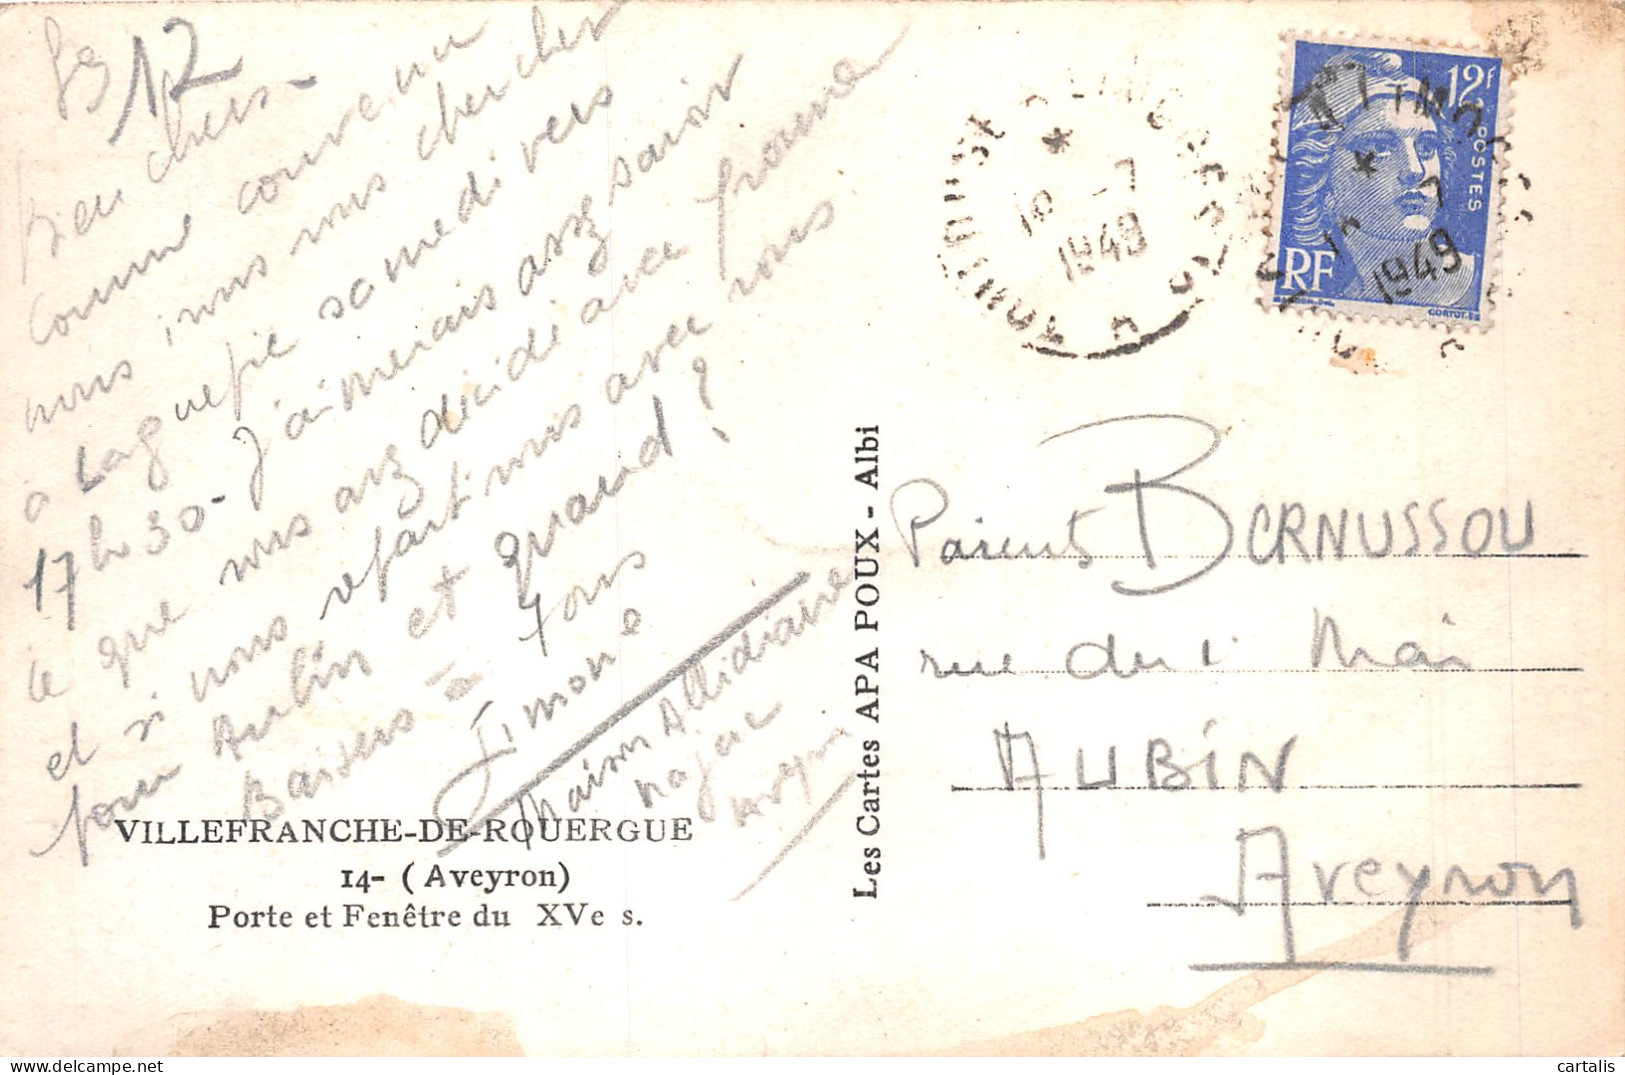 12
Bien chers -
comme convenu
nous irons vous chercher
à Laguepie samedi vers
17h30 - J'aimerais assez savoir
ce que vous avez décidé avec
et si vous repartirez avec vous
pour Aubin et quand ?
Baisers à tous
Simone
Maison
Najac
Aveyron
VILLEFRANCHE-DE-ROUERGUE
14- (Aveyron)
Porte et Fenêtre du XVe s.
Les Cartes APA POUX - Albi
1949
12f
POSTES
RF
1949
Parents BERNUSSOU
rue du 1er Mai
AUBIN
Aveyron
cartalis